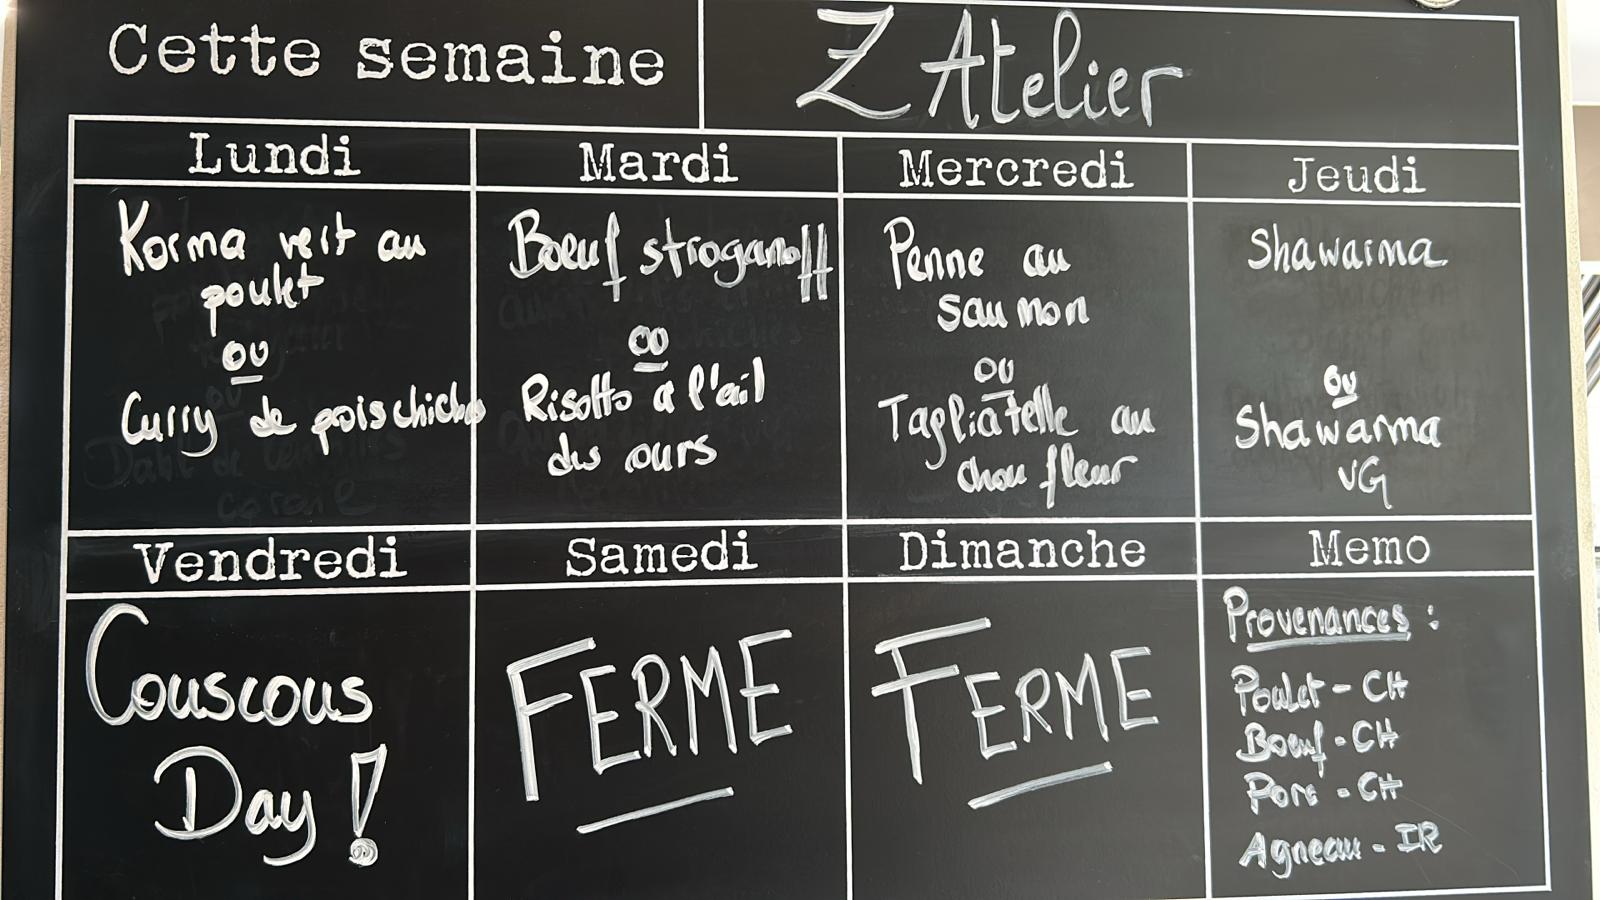 Cette semaine
Z Atelier
Lundi
Korma vert au
poulet
ou
Curry de pois chiches
Mardi
Boeuf stroganoff
ou
Risotto à l'ail
des ours
Mercredi
Penne au
saumon
ou
Tagliatelle au
chou fleur
Jeudi
Shawarma
ou
Shawarma
VG
Vendredi
Couscous
Day!
Samedi
FERME
Dimanche
FERME
Memo
Provenances :
Poulet - CH
Boeuf - CH
Porc - CH
Agneau - IR